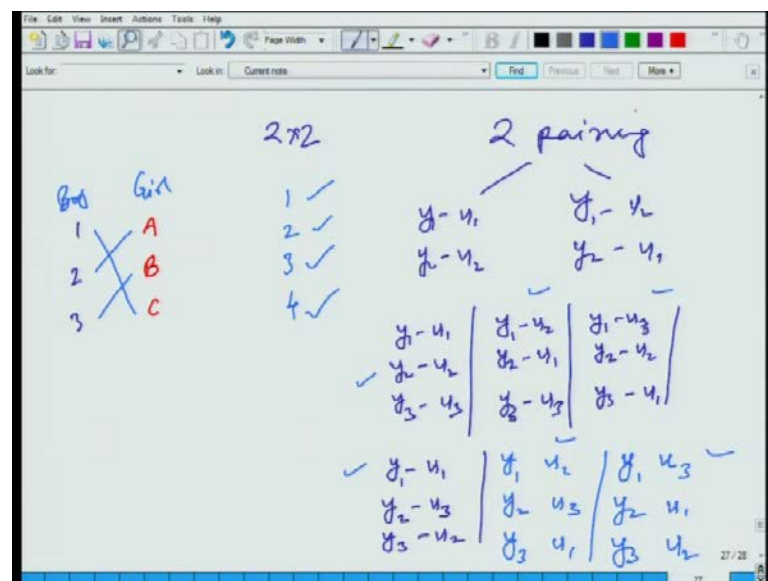 File Edit View Insert Actions Tools Help
Page Width
B I
Look for: Look in: Current note Find Previous Next More
2x2 2 pairing
Boy Girl
1 A
2 B
3 C
1 ✓
2 ✓
3 ✓
4 ✓
y1 - u1
y2 - u2
y1 - u2
y2 - u1
y1 - u1 | y1 - u2 | y1 - u3
y2 - u2 | y2 - u1 | y2 - u2
y3 - u3 | y3 - u3 | y3 - u1
y1 - u1 | y1 u2 | y1 u3
y2 - u3 | y2 u3 | y2 u1
y3 - u2 | y3 u1 | y3 u2
27 / 28
27